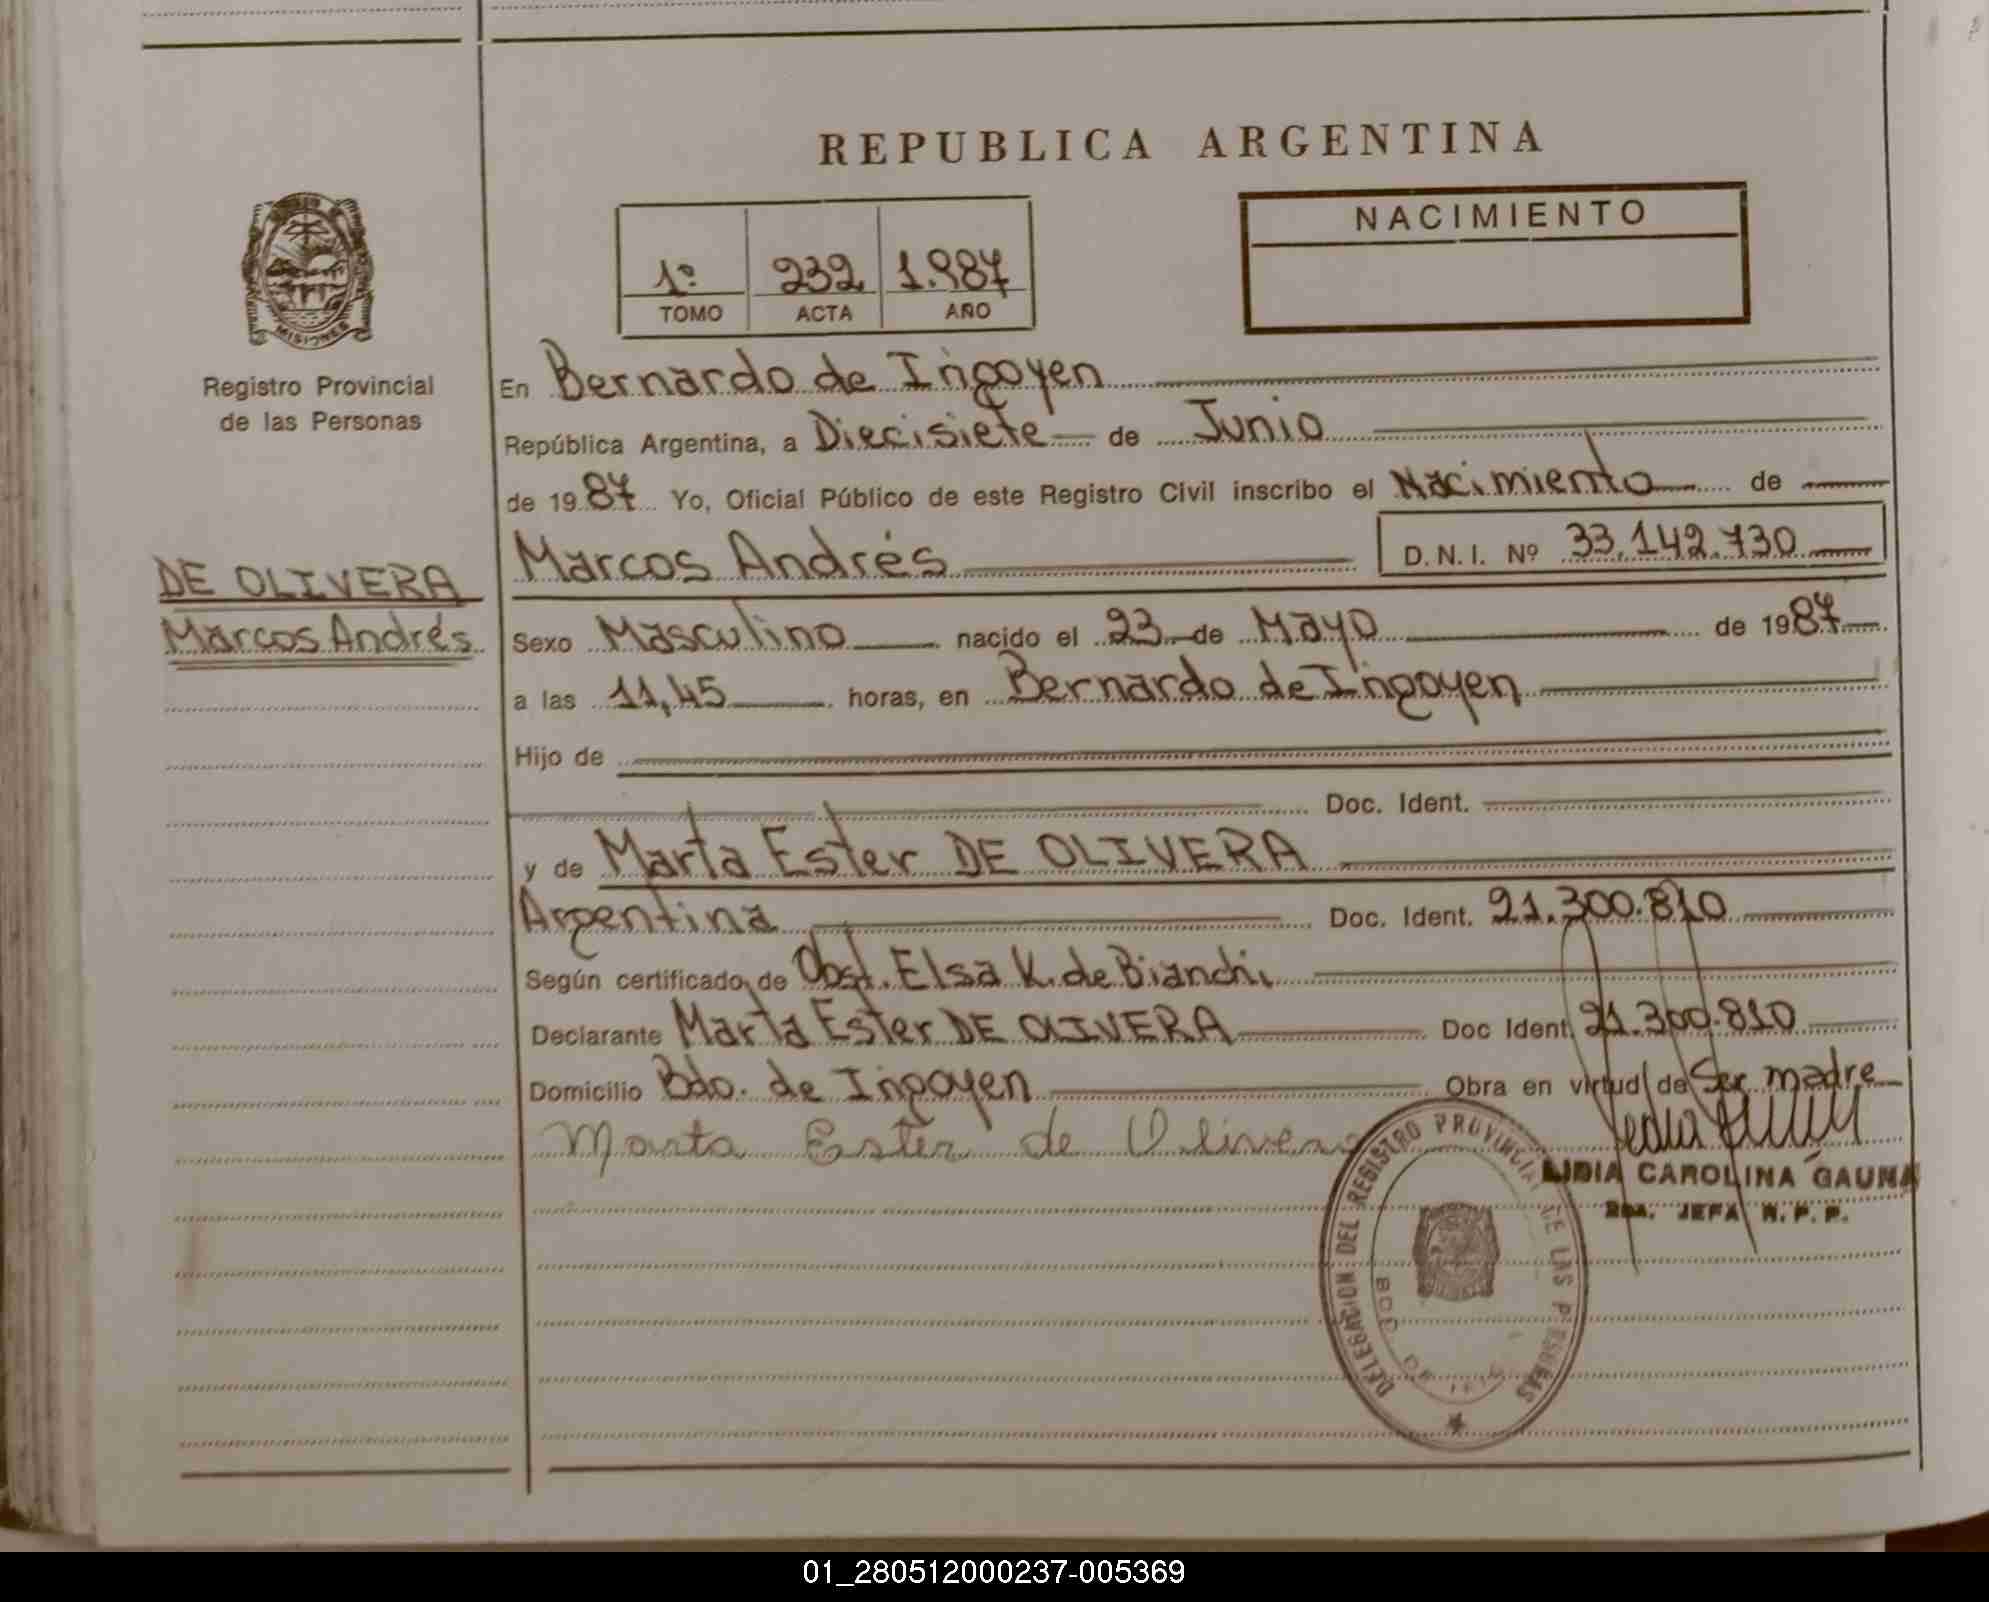 REPUBLICA ARGENTINA
NACIMIENTO
1º 232 1.987
TOMO ACTA AÑO
MISIONES
Registro Provincial
de las Personas
DE OLIVERA
Marcos Andrés
En Bernardo de Irigoyen
República Argentina, a Diecisiete de Junio
de 1987 Yo, Oficial Público de este Registro Civil inscribo el Nacimiento de
Marcos Andrés D.N.I. Nº 33.142.730
Sexo Masculino nacido el 23 de Mayo de 1987
a las 11,45 horas, en Bernardo de Irigoyen
Hijo de
Doc. Ident.
y de Marta Ester DE OLIVERA
Argentina Doc. Ident. 21.300.810
Según certificado de Obst. Elsa K. de Bianchi
Declarante Marta Ester DE OLIVERA Doc Ident. 21.300.810
Domicilio Bdo. de Irigoyen Obra en virtud de Ser madre
Marta Ester de Olivera
LIDIA CAROLINA GAUNA
JEFA R.P.P.
DELEGACION DEL REGISTRO PROVINCIAL DE LAS PERSONAS
BDO. DE IRIG
01_280512000237-005369